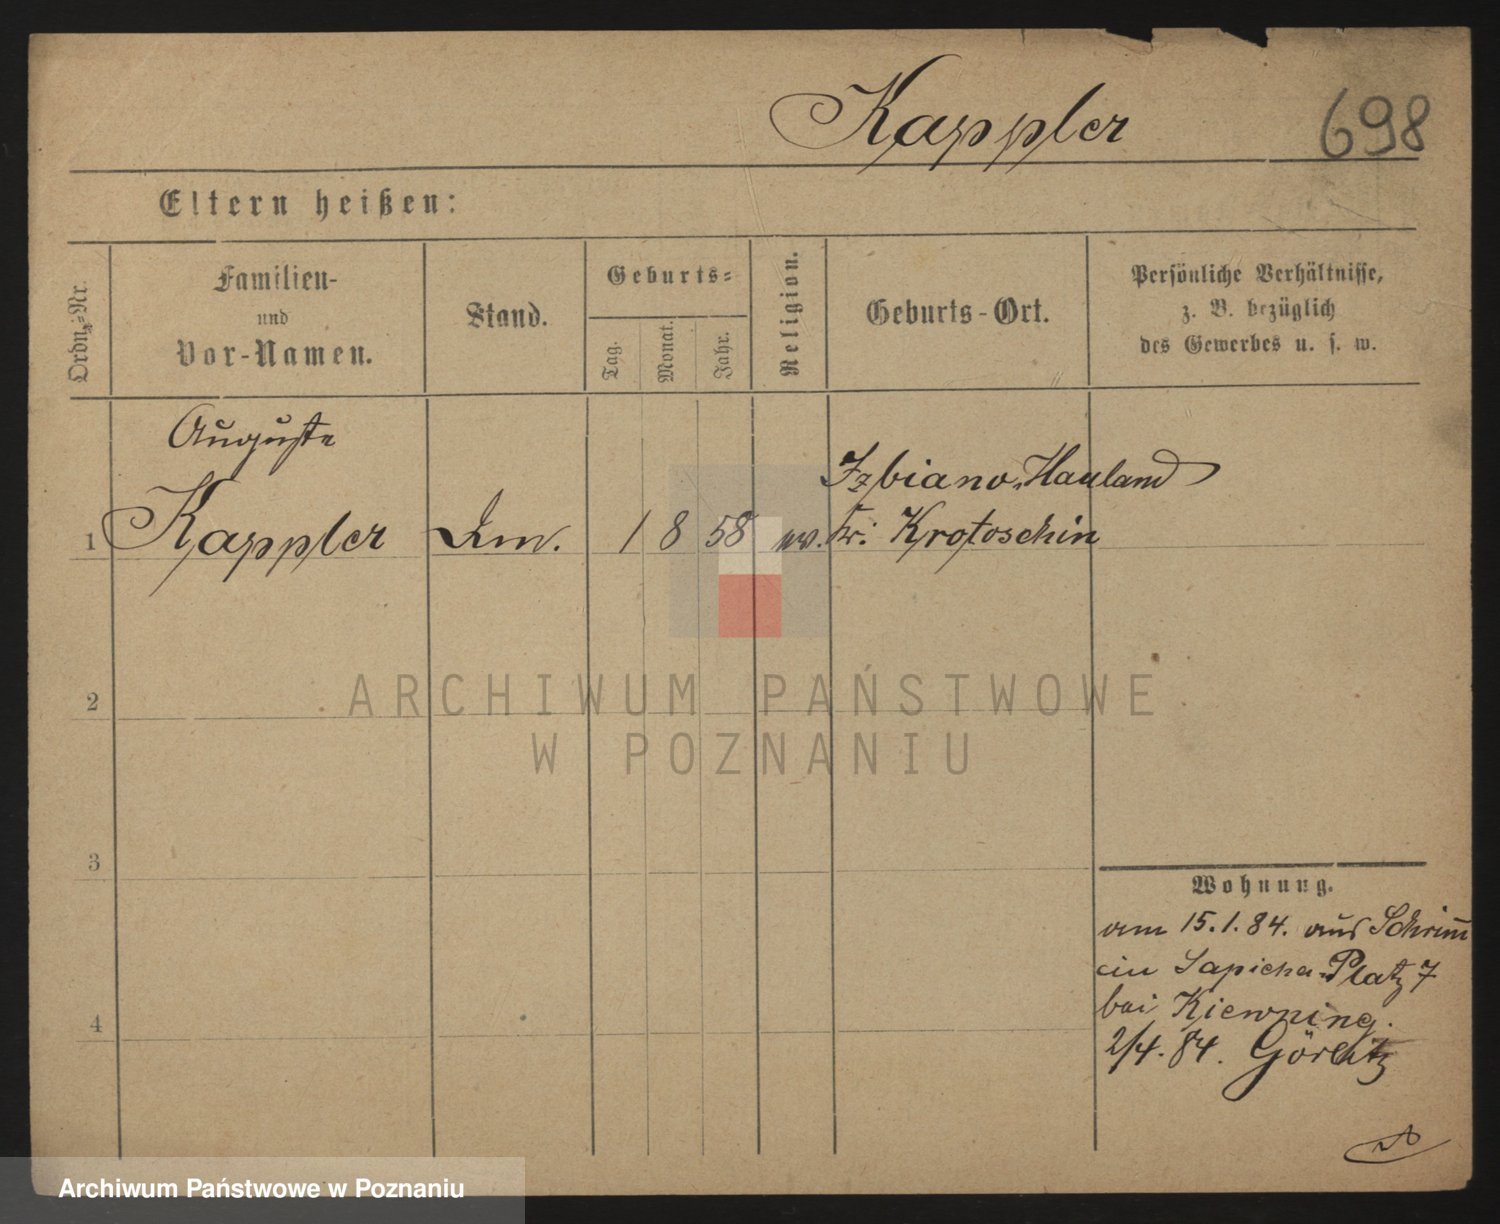 Kappler
698
Eltern heißen:
Ordn.-Nr.
Familien-
und
Vor-Namen.
Stand.
Geburts-
Tag.
Monat.
Jahr.
Religion.
Geburts-Ort.
Persönliche Verhältnisse,
z. B. bezüglich
des Gewerbes u. s. w.
Auguste
1 Kappler 1 8 58 Kr. Krotoschin
Hauland
2
ARCHIWUM PAŃSTWOWE
W POZNANIU
3
Wohnung.
am 15.1.84. aus Schrim̅
in Sapieha-Platz 7
bei Kiewning.
4
2/4. 84. Görlitz
Archiwum Państwowe w Poznaniu